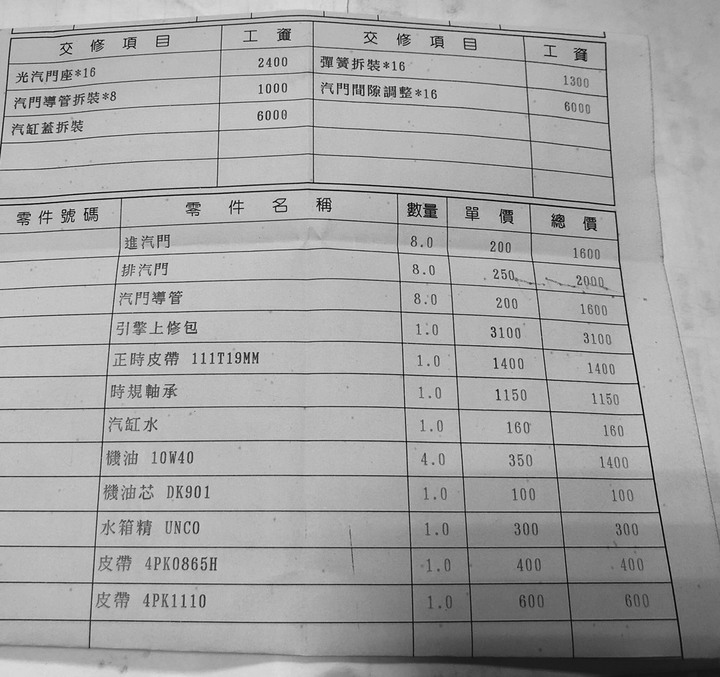 交修項目 工資 交修項目 工資
光汽門座*16 2400 彈簧拆裝*16 1300
汽門導管拆裝*8 1000 汽門間隙調整*16 6000
汽缸蓋拆裝 6000
零件號碼 零件名稱 數量 單價 總價
進汽門 8.0 200 1600
排汽門 8.0 250 2000
汽門導管 8.0 200 1600
引擎上修包 1.0 3100 3100
正時皮帶 111T19MM 1.0 1400 1400
時規軸承 1.0 1150 1150
汽缸水 1.0 160 160
機油 10W40 4.0 350 1400
機油芯 DK901 1.0 100 100
水箱精 UNCO 1.0 300 300
皮帶 4PK0865H 1.0 400 400
皮帶 4PK1110 1.0 600 600